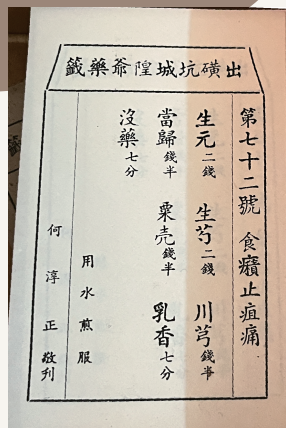 出磺坑城隍爺藥籤
第七十二號 食癪止疽痛
生元二錢 生芍二錢 川芎錢半
當歸錢半 粟壳錢半 乳香七分
沒藥七分
用水煎服
何淳正敬刋